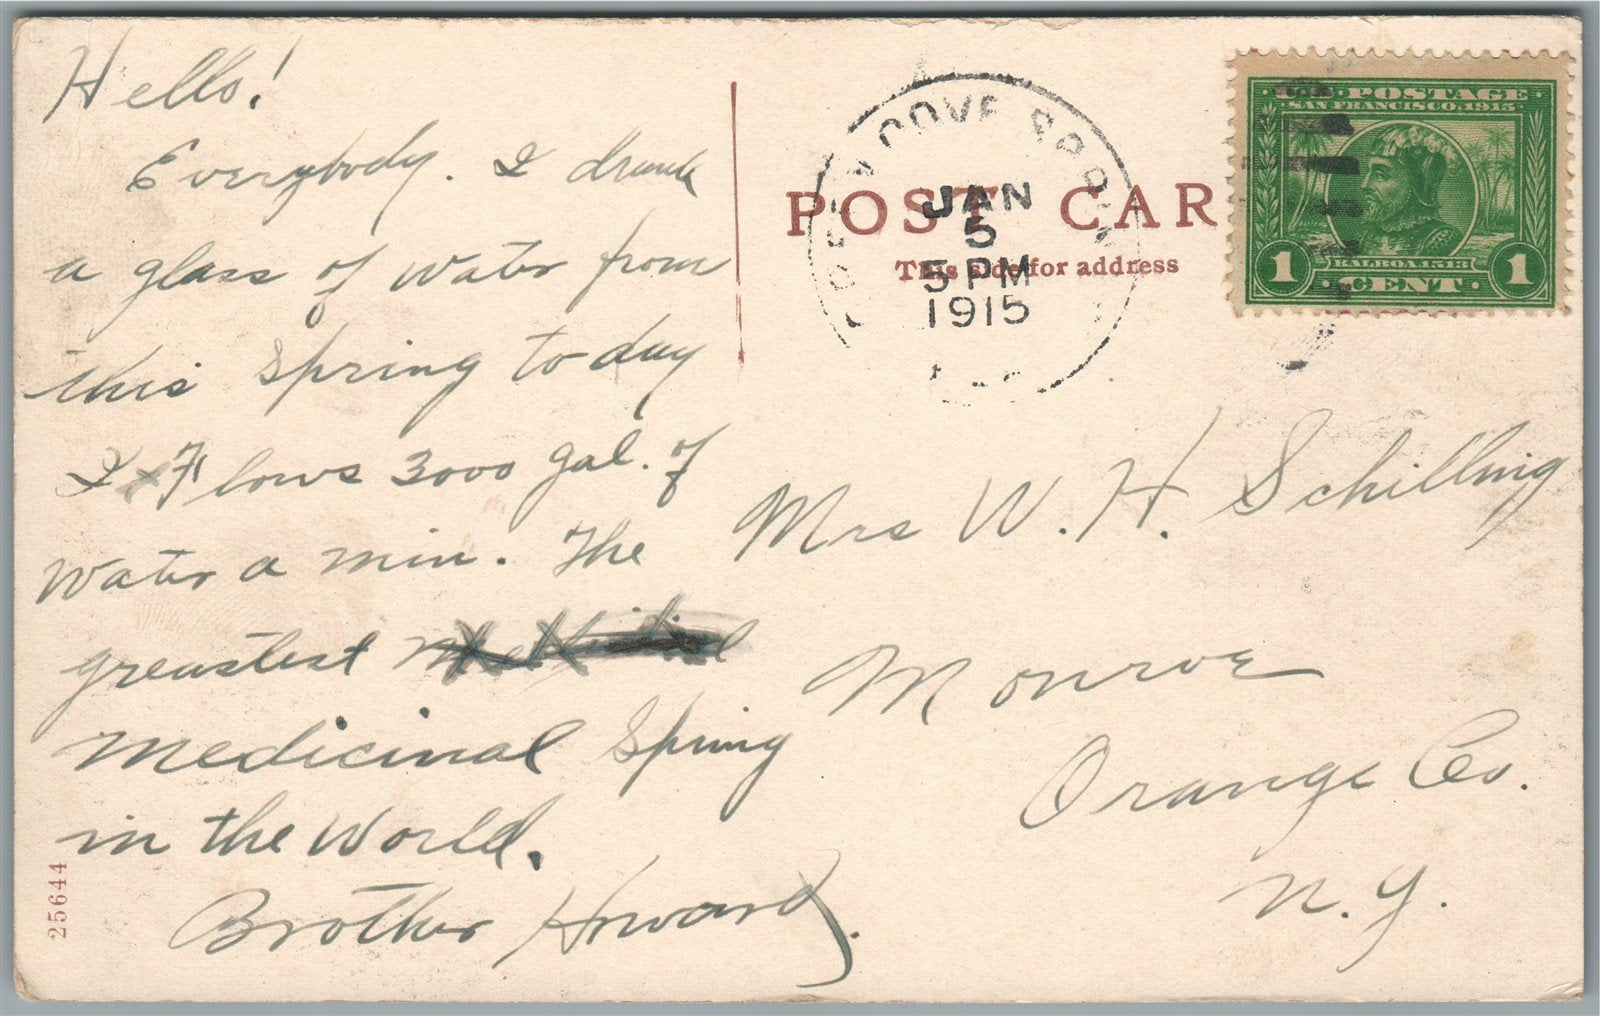 Hello!
Everybody. I drank
a glass of water from
this spring to day
I Flows 3000 gal. of
water a min. The
greastest
medicinal spring
in the world.
Brother Howard.
25644
POST CAR
This side for address
GREEN COVE SPRIN
JAN
5
5 PM
1915
U.S. POSTAGE
SAN FRANCISCO, 1915
BALBOA 1513
1 CENT 1
Mrs W. H. Schilling
Monroe
Orange Co.
N. Y.